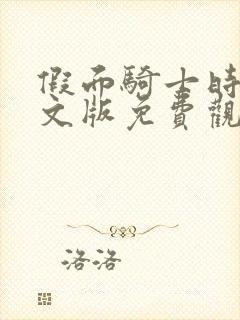 假面騎士時
文版免費觀
洛洛